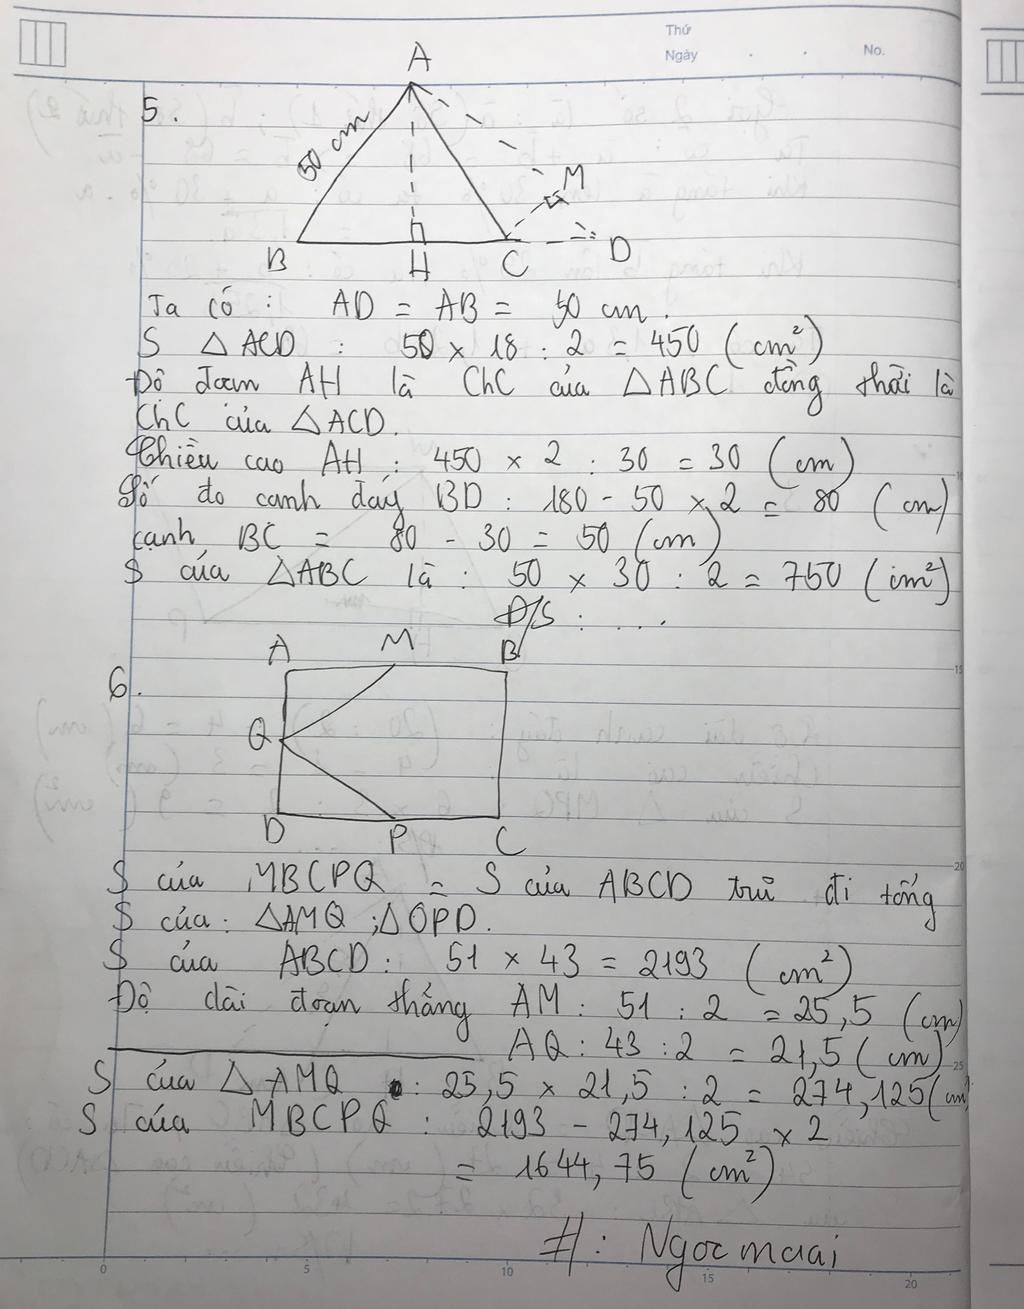 Thứ
Ngày . . No.
A
5.
50 cm
M
B H C D
Ta có : AD = AB = 50 cm.
S △ ACD : 50 × 18 : 2 = 450 (cm²)
Độ đoạn AH là ChC của △ABC đồng thời là
ChC của △ACD.
Chiều cao AH : 450 × 2 : 30 = 30 (cm)
Số đo cạnh đáy BD : 180 - 50 × 2 = 80 (cm)
cạnh BC = 80 - 30 = 50 (cm)
S của △ABC là : 50 × 30 : 2 = 750 (cm²)
Đ/S : ....
A M B
6.
Q
D P C
S của MBCPQ = S của ABCD trừ đi tổng
S của : △AMQ ; △QPD.
S của ABCD : 51 × 43 = 2193 (cm²)
Độ dài đoạn thẳng AM : 51 : 2 = 25,5 (cm)
AQ : 43 : 2 = 21,5 (cm)
S của △ AMQ : 25,5 × 21,5 : 2 = 274,125 (cm
S của MBCPQ : 2193 - 274,125 × 2
= 1644,75 (cm²)
# : Ngocmaai
0 5 10 15 20